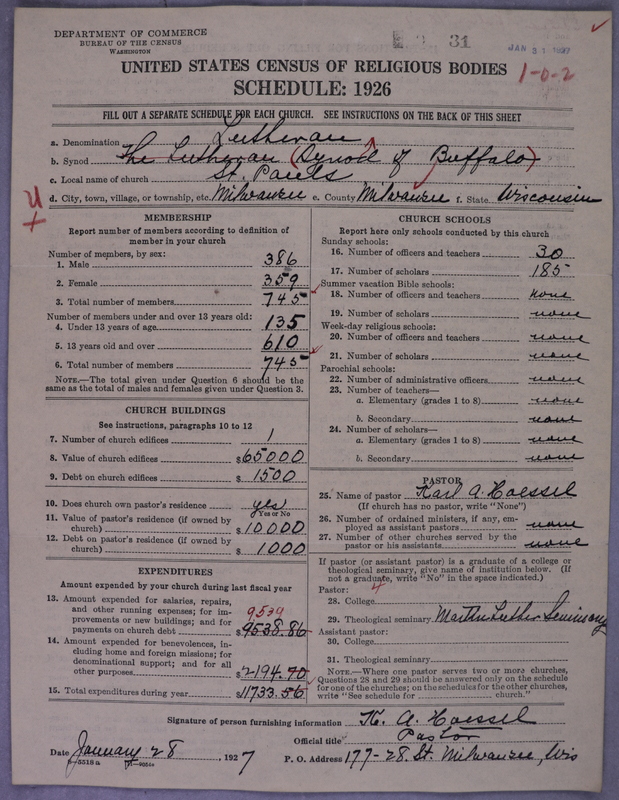 DEPARTMENT OF COMMERCE
BUREAU OF THE CENSUS
WASHINGTON
31
JAN 31 1927
1-0-2
UNITED STATES CENSUS OF RELIGIOUS BODIES
SCHEDULE: 1926
FILL OUT A SEPARATE SCHEDULE FOR EACH CHURCH. SEE INSTRUCTIONS ON THE BACK OF THIS SHEET
a. Denomination Lutheran
b. Synod The Lutheran (Synod of Buffalo)
c. Local name of church St. Pauls
d. City, town, village, or township, etc. Milwaukee e. County Milwaukee f. State Wisconsin
MEMBERSHIP
Report number of members according to definition of
member in your church
Number of members, by sex:
1. Male 386
2. Female 359
3. Total number of members 745
Number of members under and over 13 years old:
4. Under 13 years of age 135
5. 13 years old and over 610
6. Total number of members 745
NOTE.—The total given under Question 6 should be
the same as the total of males and females given under Question 3.
CHURCH BUILDINGS
See instructions, paragraphs 10 to 12
7. Number of church edifices 1
8. Value of church edifices $65000
9. Debt on church edifices $1500
10. Does church own pastor's residence yes
Yes or No
11. Value of pastor's residence (if owned by
church) $10000
12. Debt on pastor's residence (if owned by
church) $1000
EXPENDITURES
Amount expended by your church during last fiscal year
13. Amount expended for salaries, repairs,
and other running expenses; for im-
provements or new buildings; and for
payments on church debt $9538.86
9539
14. Amount expended for benevolences, in-
cluding home and foreign missions; for
denominational support; and for all
other purposes $2194.70
15. Total expenditures during year $11733.56
CHURCH SCHOOLS
Report here only schools conducted by this church
Sunday schools:
16. Number of officers and teachers 30
17. Number of scholars 185
Summer vacation Bible schools:
18. Number of officers and teachers none
19. Number of scholars none
Week-day religious schools:
20. Number of officers and teachers none
21. Number of scholars none
Parochial schools:
22. Number of administrative officers none
23. Number of teachers—
a. Elementary (grades 1 to 8) none
b. Secondary none
24. Number of scholars—
a. Elementary (grades 1 to 8) none
b. Secondary none
PASTOR
25. Name of pastor Karl A. Hoessel
(If church has no pastor, write "None")
26. Number of ordained ministers, if any, em-
ployed as assistant pastors none
27. Number of other churches served by the
pastor or his assistants none
If pastor (or assistant pastor) is a graduate of a college or
theological seminary, give name of institution below. (If
not a graduate, write "No" in the space indicated.)
Pastor:
28. College
29. Theological seminary Martin Luther Seminary
Assistant pastor:
30. College
31. Theological seminary
NOTE.—Where one pastor serves two or more churches,
Questions 28 and 29 should be answered only on the schedule
for one of the churches; on the schedules for the other churches,
write "See schedule for church."
Signature of person furnishing information K. A. Hoessel
Official title Pastor
Date January 28, 1927 P. O. Address 177-28. St. Milwaukee, Wis
8-5518a